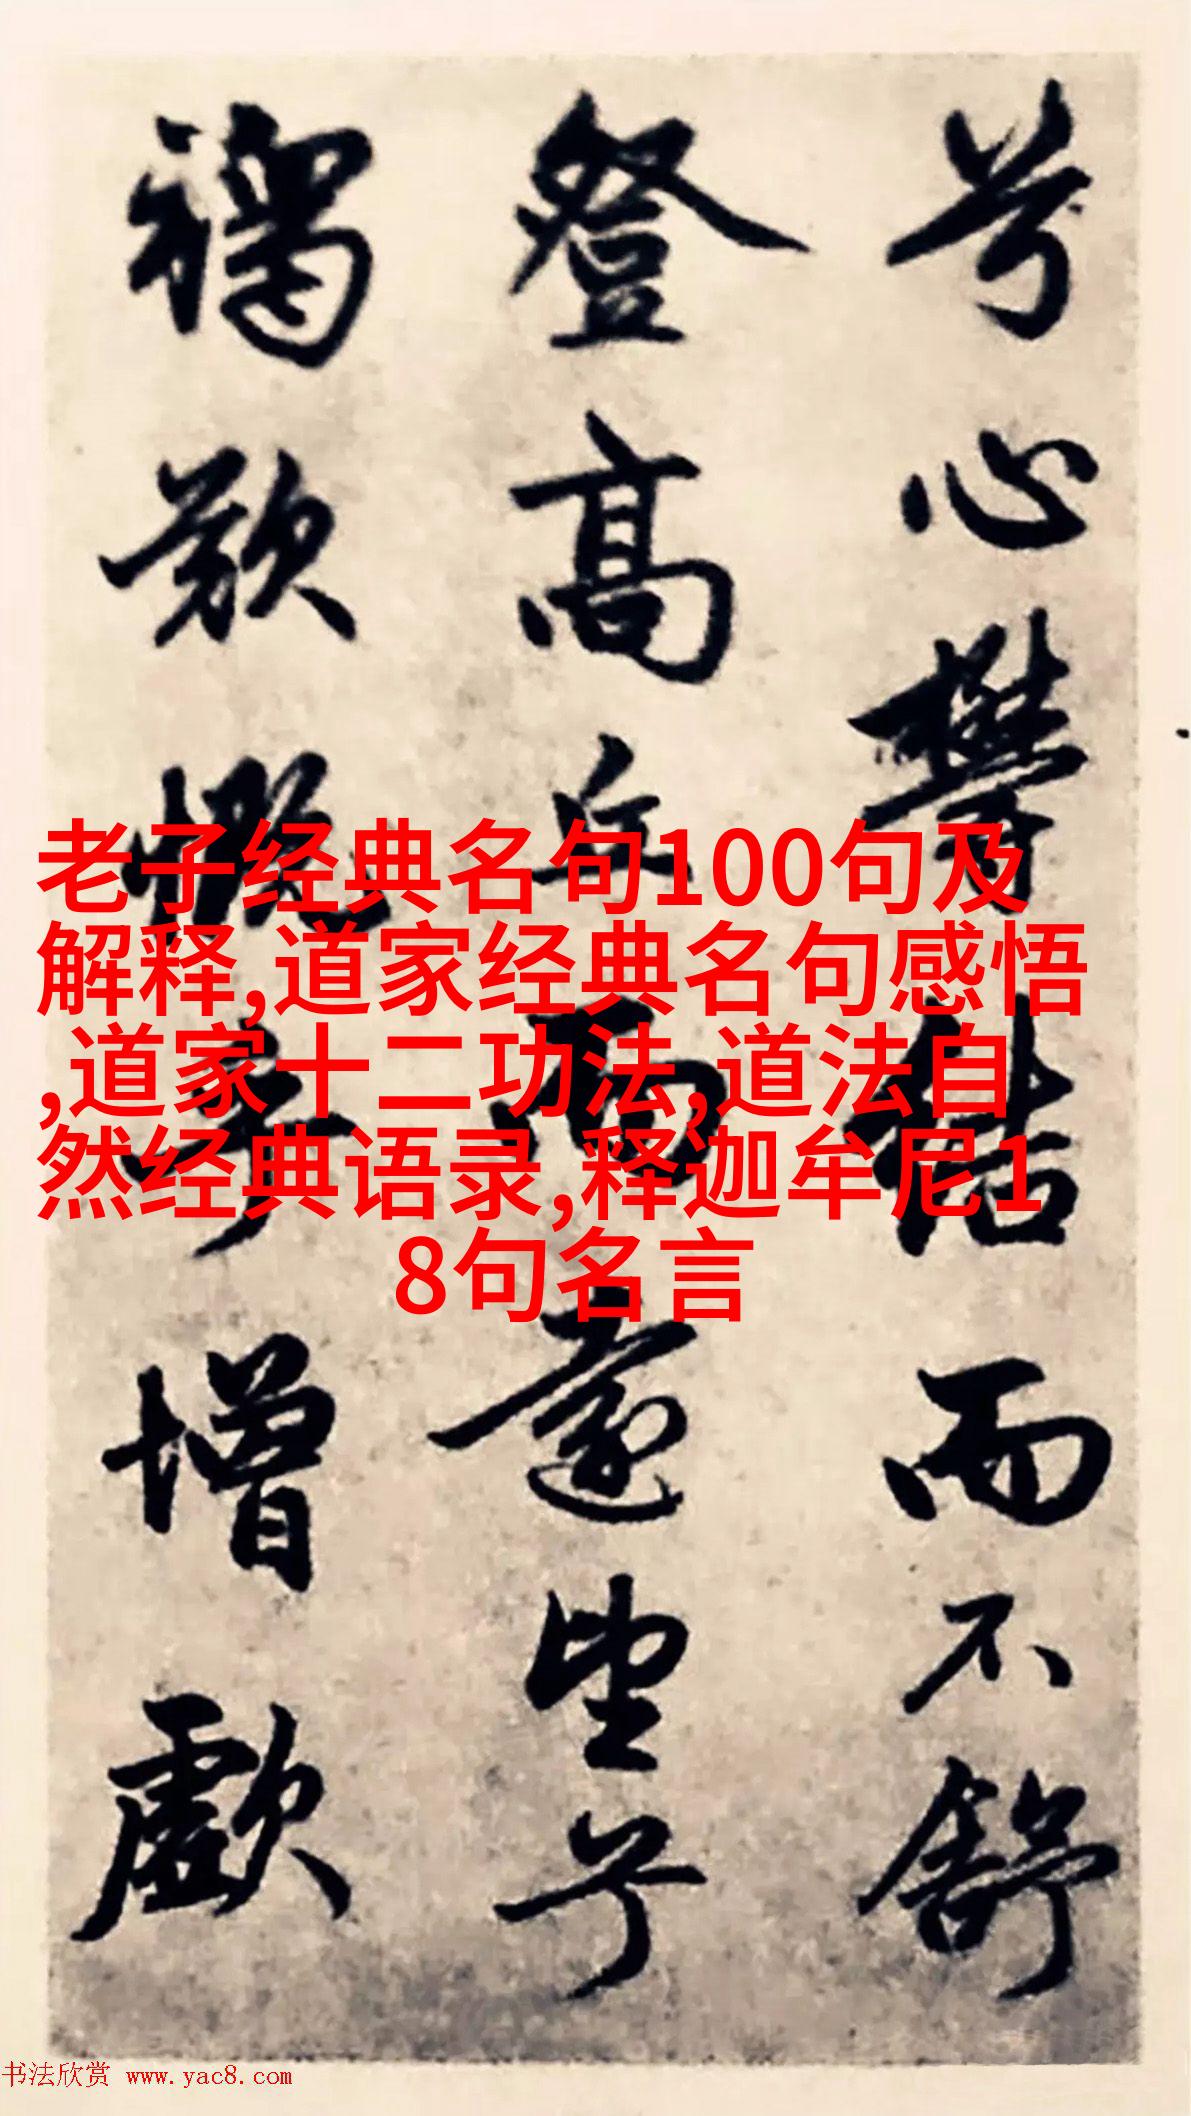 兮心欝結而不舒
登高丘而遠望兮
增歔
老子经典名句100句及
解释,道家经典名句感悟
,道家十二功法,道法自
然经典语录,释迦牟尼1
8句名言
书法欣赏 www.yac8.com